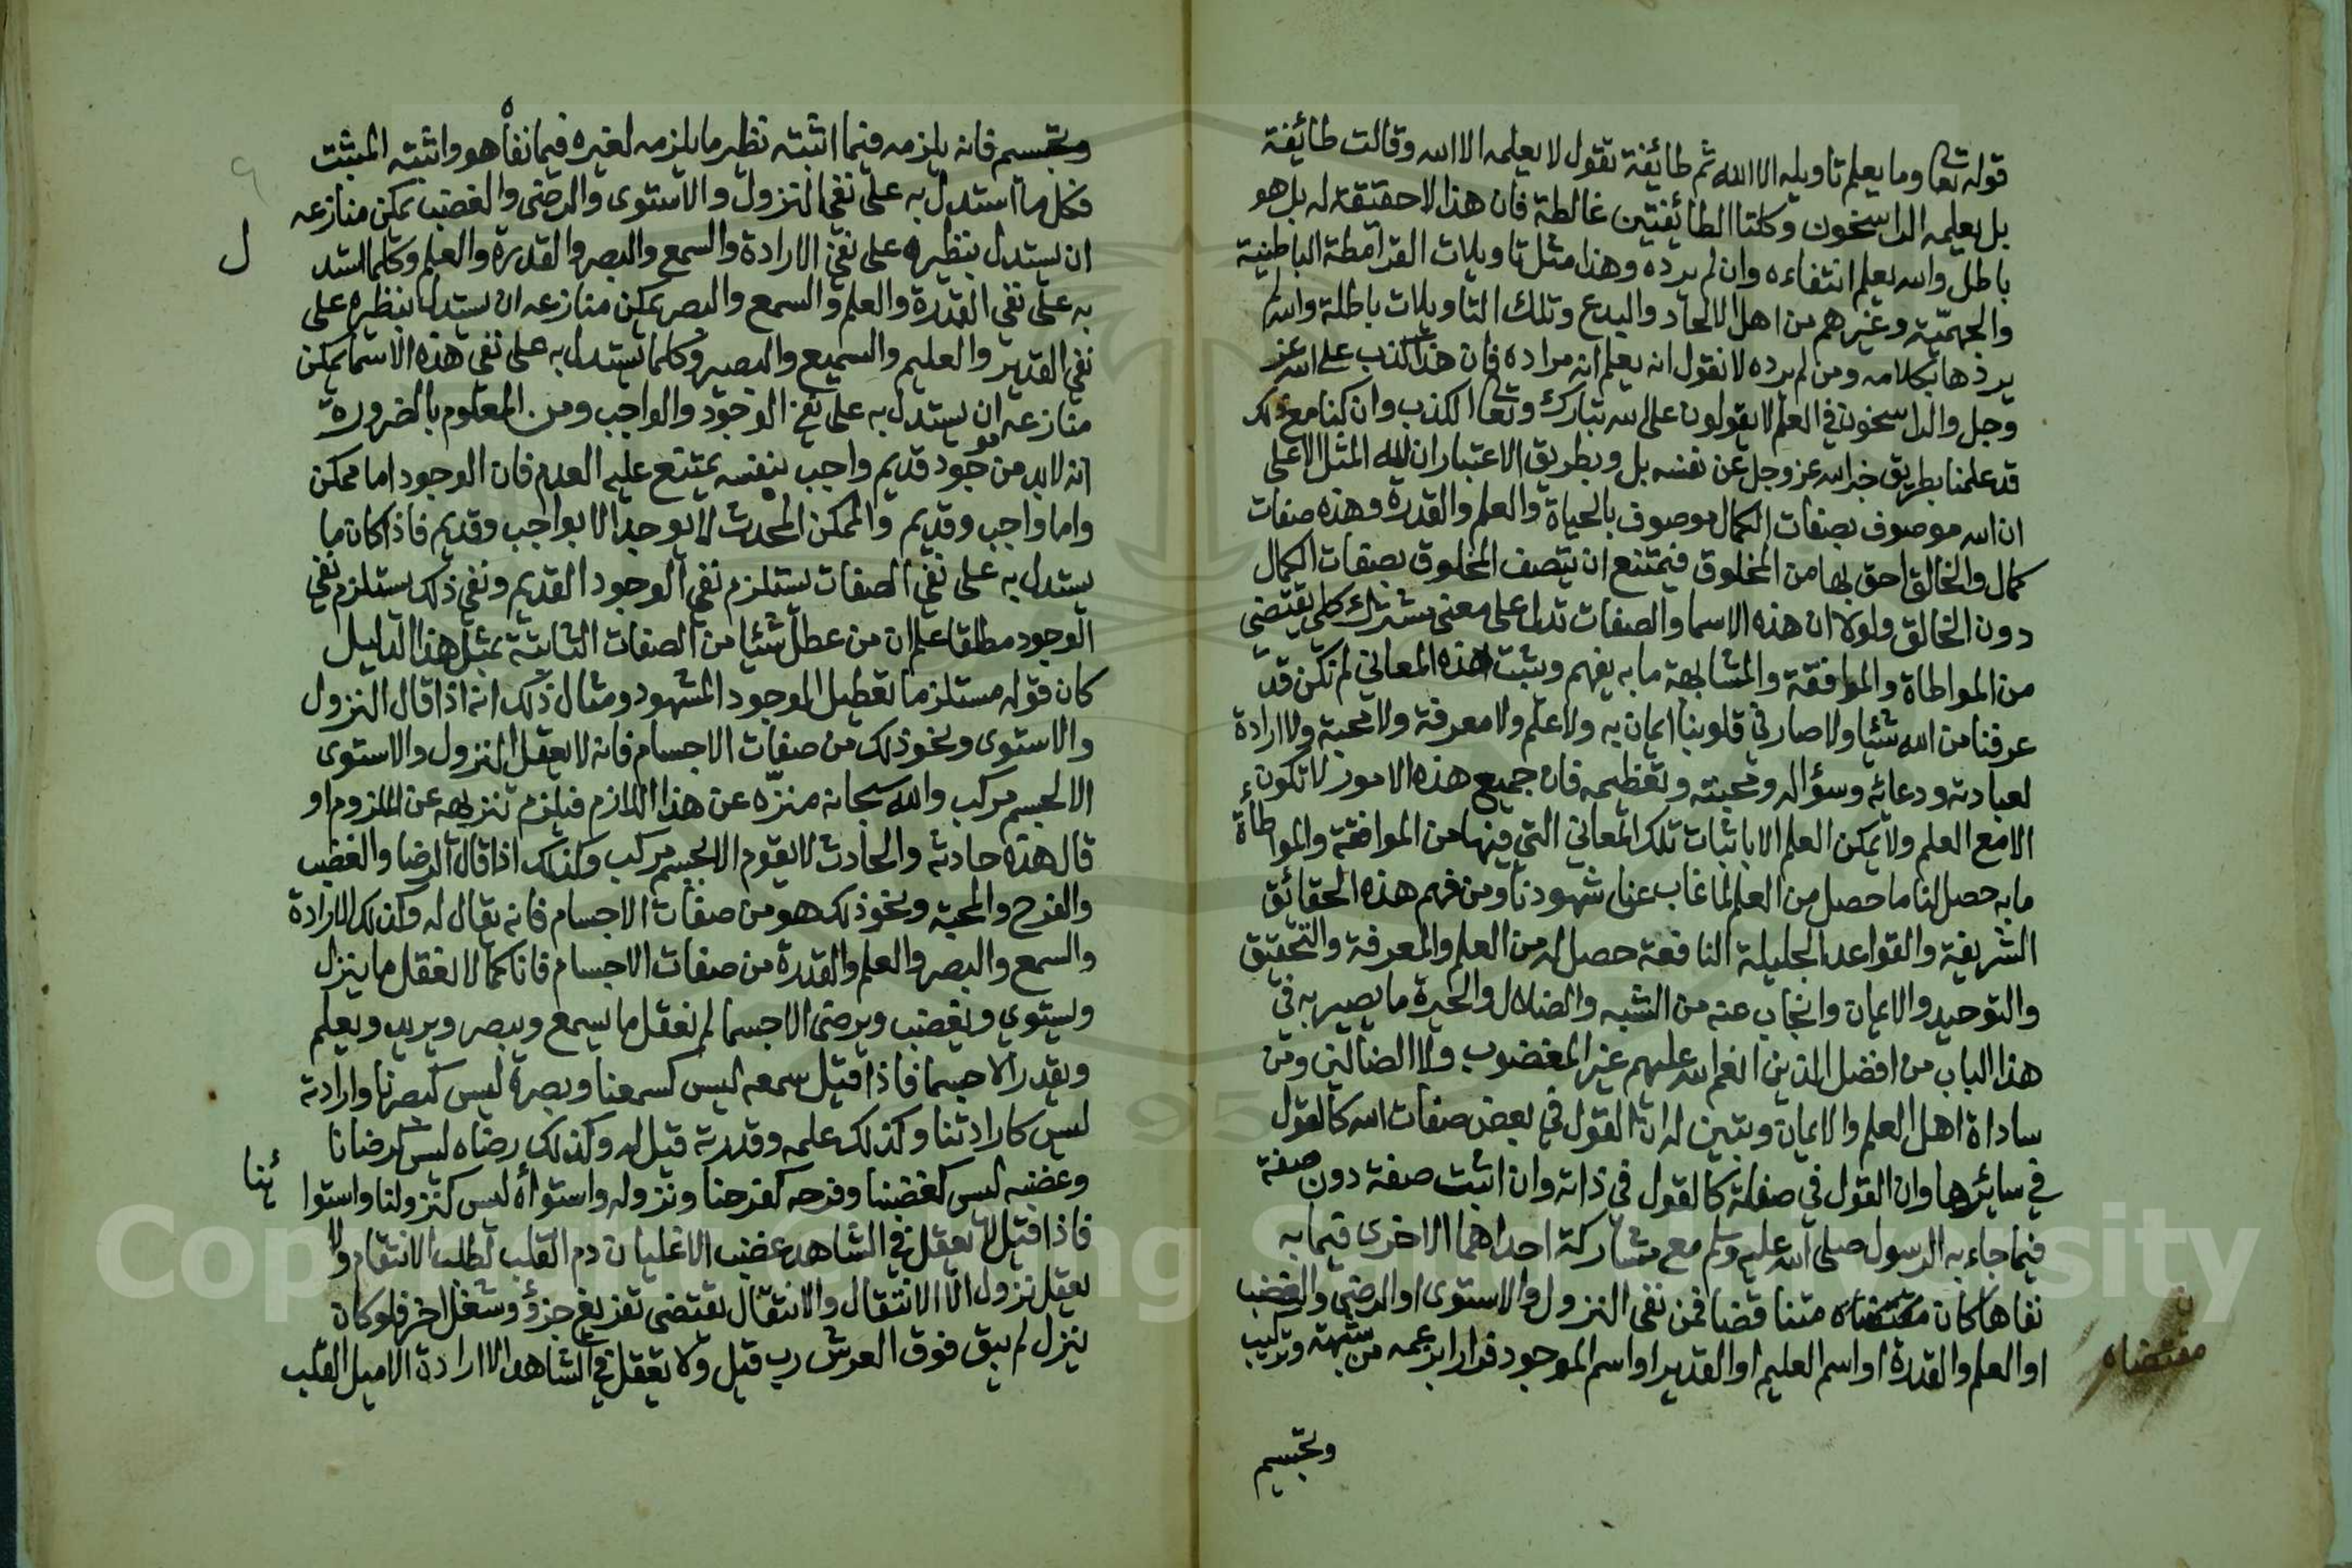 قوله تعا وما يعلم تاويله الا الله ثم طائفة تقول لا يعلمه الا الله وقالت طائفة
بل يعلمه الراسخون وكلتا الطائفتين غالطة فان هذا لا حقيقة له بل هو
باطل والله يعلم انتفاءه وان لم يرده وهذا مثل تاويلات القرامطة الباطنية
والجهميّة وغيرهم من اهل الالحاد والبدع وتلك التاويلات باطلة والله لم
يردها بكلامه ومن لم يرده لا نقول انه يعلم انه مراده فان هذا كذب على الله عز
وجل والراسخون في العلم لا يقولون على الله تبارك وتعا الكذب وان كنا مع ذلك
قد علمنا بطريق خبر الله عز وجل عن نفسه بل وبطريق الاعتبار ان لله المثل الاعلى
ان الله موصوف بصفات الكمال موصوف بالحياة والعلم والقدرة وهذه صفات
كمال والخالق احق بها من المخلوق فيمتنع ان يتصف المخلوق بصفات الكمال
دون الخالق ولولا ان هذه الاسما والصفات تدل على معنى مشترك كلي يقتضي
من المواطاة والموافقة والمشابهة ما به يفهم ويثبت هذه المعاني لم نكن قد
عرفنا من الله شئيا ولا صار في قلوبنا ايمان به ولا علم ولا معرفة ولا محبة ولا ارادة
لعبادته ودعائه وسؤاله ومحبته وتعظيمه فان جميع هذه الامور لا تكون
الا مع العلم ولا يمكن العلم الا باثبات تلك المعاني التي فيها من الموافقة والمواطأة
ما به حصل لنا ما حصل من العلم لما غاب عن شهودنا ومن فهم هذه الحقائق
الشريفة والقواعد الجليلة النافعة حصل له من العلم والمعرفة والتحقيق
والتوحيد والايمان وانجاب عنه من الشبه والضلال والحيرة ما يصير به في
هذا الباب من افضل الذين انعم الله عليهم غير المغضوب ولا الضالين ومن
ساداة اهل العلم والايمان وتبين له ان القول في بعض صفات الله كالقول
في سائرها وان القول في صفاته كالقول في ذاته وان اثبت صفة دون صفة
فيما جاء به الرسول صلى الله عليه وسلم مع مشاركة احداهما الاخرى فيما به
نفاها كان متناقضا فمن نفى النزول والاستوى او الرضى والغضب
او العلم والقدرة او اسم العليم او القدير او اسم الموجود فرارا بزعمه من شبهة وتركيب
ن
مقتضاه
وتجسيم
وتجسيم فانه يلزمه فيما اثبته نظير ما يلزمه لغيره فيما نفاه هو واثبته المثبت
فكل ما استدل به على نفي النزول والاستوى والرضى والغضب يمكن منازعه
ان يستدل بنظيره على نفي الارادة والسمع والبصر والقدرة والعلم وكلما استد
ل
به على نفي القدرة والعلم والسمع والبصر يمكن منازعه ان يستدل بنظيره على
نفي القدير والعليم والسميع والبصير وكلما يستدل به على نفي هذه الاسما يمكن
منازعه ان يستدل به على نفي الوجود والواجب ومن المعلوم بالضرورة
انه لا بد من موجود قديم واجب بنفسه يمتنع عليه العدم فان الوجود اما ممكن
واما واجب وقديم والممكن المحدث لا يوجد الا بواجب وقديم فاذا كان ما
يستدل به على نفي الصفات يستلزم نفي الوجود القديم ونفي ذلك يستلزم نفي
الوجود مطلقا علم ان من عطل شئيا من الصفات الثابتة بمثل هذا الدليل
كان قوله مستلزما تعطيل الموجود المشهود ومثال ذلك انه اذا قال النزول
والاستوى ونحو ذلك من صفات الاجسام فانه لا يعقل النزول والاستوى
الا لجسم مركب والله سبحانه منزّه عن هذا اللازم فيلزم تنزيهه عن الملزوم او
قال هذه حادثة والحادث لا يقوم الا بجسم مركب وكذلك اذا قال الرضا والغضب
والفرح والمحبة ونحو ذلك هو من صفات الاجسام فانه يقال له وكذلك الارادة
والسمع والبصر والعلم والقدرة من صفات الاجسام فانا كما لا نعقل ما ينزل
ويستوي ويغضب ويرضى الا جسما لم نعقل ما يسمع ويبصر ويريد ويعلم
ويقدر الا جسما فاذا قيل سمعه ليس كسمعنا وبصره ليس كبصرنا وارادته
ليس كارادتنا وكذلك علمه وقدرته قيل له وكذلك رضاه ليس كرضانا
وغضبه ليس كغضبنا وفرحه كفرحنا ونزوله واستوائه ليس كنزولنا واستوا
ئنا
فاذا قيل لا يعقل في الشاهد غضب الا غليان دم القلب لطلب الانتقام ولا
يعقل نزول الا الانتقال والانتقال يقتضي تفريغ جزؤ وشغل اخر فلو كان
ينزل لم يبق فوق العرش رب قيل ولا يعقل في الشاهد الا ارادة الا ميل القلب